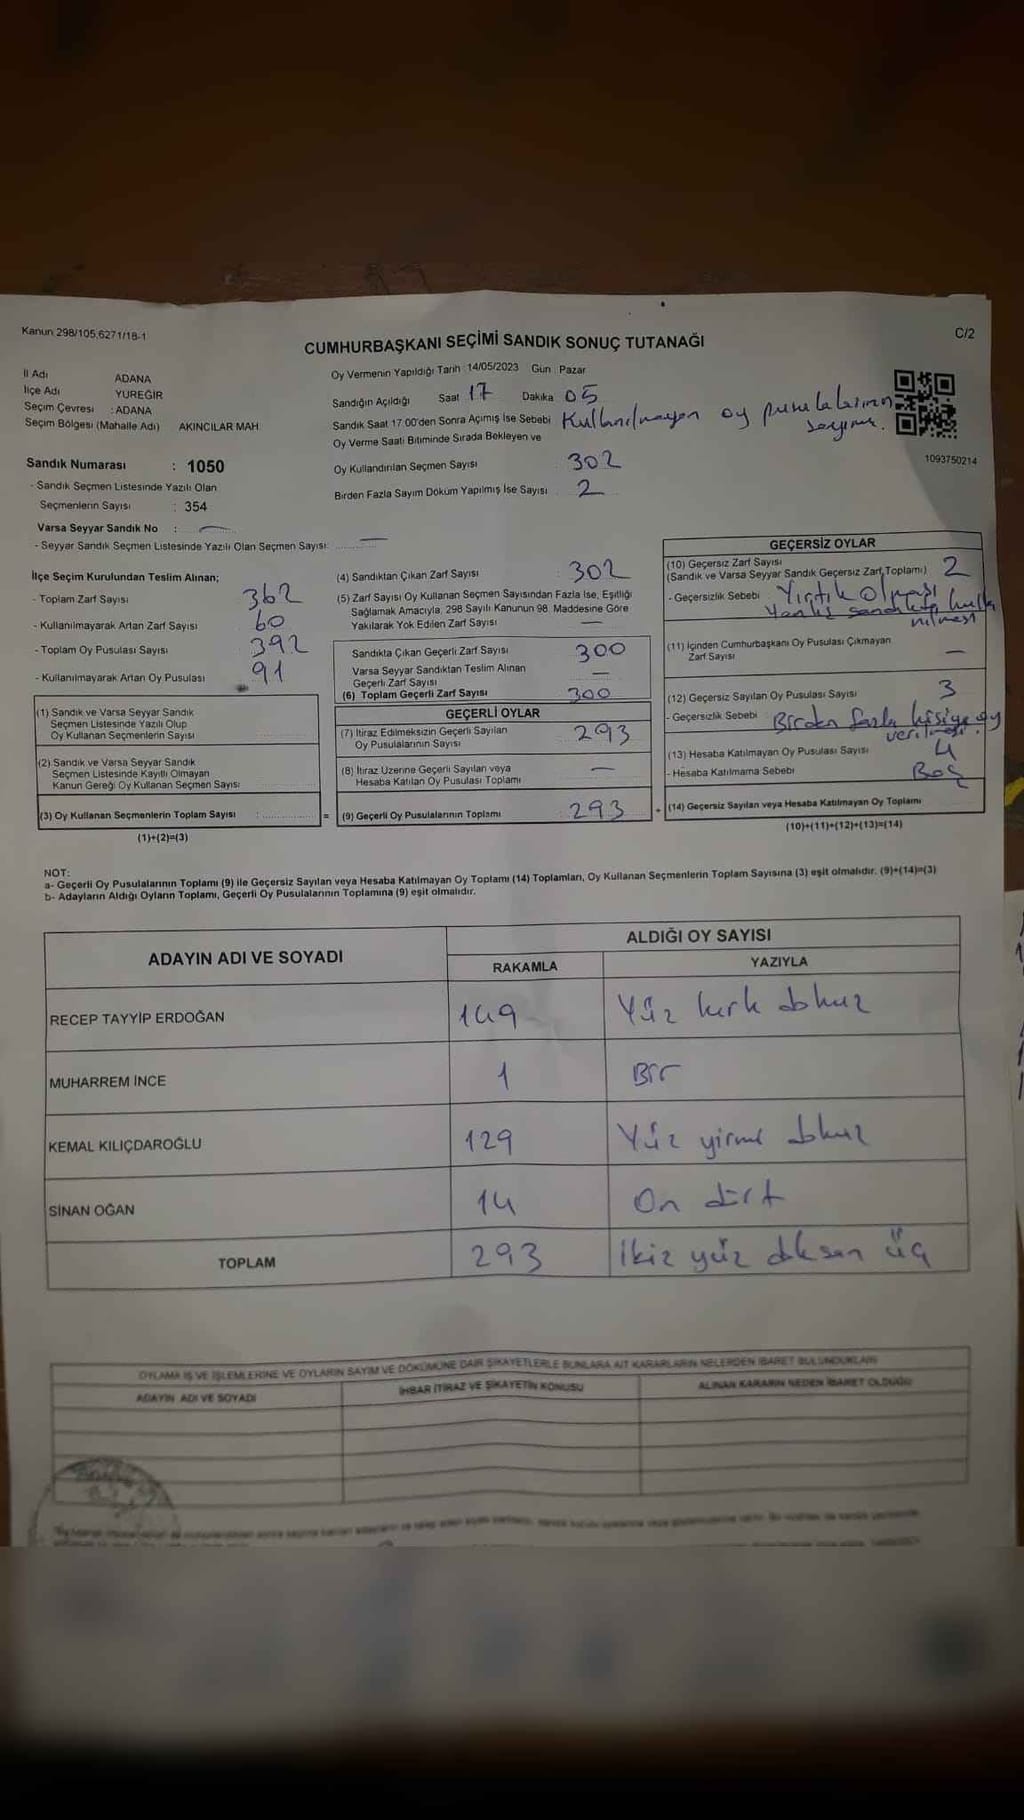 Kanun 298/105,6271/18-1
C/2
CUMHURBAŞKANI SEÇİMİ SANDIK SONUÇ TUTANAĞI
İl Adı ADANA
İlçe Adı YÜREĞİR
Seçim Çevresi : ADANA
Seçim Bölgesi (Mahalle Adı) AKINCILAR MAH.
Sandık Numarası : 1050
- Sandık Seçmen Listesinde Yazılı Olan
Seçmenlerin Sayısı : 354
Varsa Seyyar Sandık No : —
- Seyyar Sandık Seçmen Listesinde Yazılı Olan Seçmen Sayısı: —
Oy Vermenin Yapıldığı Tarih : 14/05/2023 Gün : Pazar
Sandığın Açıldığı Saat 17 Dakika 05
Sandık Saat 17.00'den Sonra Açılmış İse Sebebi Kullanılmayan oy pusulalarının sayımı.
Oy Verme Saati Bitiminde Sırada Bekleyen ve
Oy Kullandırılan Seçmen Sayısı 302
Birden Fazla Sayım Döküm Yapılmış İse Sayısı 2
1093750214
İlçe Seçim Kurulundan Teslim Alınan;
- Toplam Zarf Sayısı 362
- Kullanılmayarak Artan Zarf Sayısı 60
- Toplam Oy Pusulası Sayısı 392
- Kullanılmayarak Artan Oy Pusulası 91
(1) Sandık ve Varsa Seyyar Sandık
Seçmen Listesinde Yazılı Olup
Oy Kullanan Seçmenlerin Sayısı
(2) Sandık ve Varsa Seyyar Sandık
Seçmen Listesinde Kayıtlı Olmayan
Kanun Gereği Oy Kullanan Seçmen Sayısı
(3) Oy Kullanan Seçmenlerin Toplam Sayısı :
(1)+(2)=(3)
(4) Sandıktan Çıkan Zarf Sayısı : 302
(5) Zarf Sayısı Oy Kullanan Seçmen Sayısından Fazla İse, Eşitliği
Sağlamak Amacıyla, 298 Sayılı Kanunun 98. Maddesine Göre
Yakılarak Yok Edilen Zarf Sayısı —
Sandıkta Çıkan Geçerli Zarf Sayısı 300
Varsa Seyyar Sandıktan Teslim Alınan
Geçerli Zarf Sayısı —
(6) Toplam Geçerli Zarf Sayısı 300
GEÇERLİ OYLAR
(7) İtiraz Edilmeksizin Geçerli Sayılan
Oy Pusulalarının Sayısı 293
(8) İtiraz Üzerine Geçerli Sayılan veya
Hesaba Katılan Oy Pusulası Toplamı —
= (9) Geçerli Oy Pusulalarının Toplamı 293 +
GEÇERSİZ OYLAR
(10) Geçersiz Zarf Sayısı
(Sandık ve Varsa Seyyar Sandık Geçersiz Zarf Toplamı) 2
- Geçersizlik Sebebi Yırtık Olması
Yanlış sandıkta kulla
nılması
(11) İçinden Cumhurbaşkanı Oy Pusulası Çıkmayan
Zarf Sayısı —
(12) Geçersiz Sayılan Oy Pusulası Sayısı 3
- Geçersizlik Sebebi Birden fazla kişiye oy
verilmesi.
(13) Hesaba Katılmayan Oy Pusulası Sayısı 4
- Hesaba Katılmama Sebebi Boş
(14) Geçersiz Sayılan veya Hesaba Katılmayan Oy Toplamı
(10)+(11)+(12)+(13)=(14)
NOT:
a- Geçerli Oy Pusulalarının Toplamı (9) ile Geçersiz Sayılan veya Hesaba Katılmayan Oy Toplamı (14) Toplamları, Oy Kullanan Seçmenlerin Toplam Sayısına (3) eşit olmalıdır. (9)+(14)=(3)
b- Adayların Aldığı Oyların Toplamı, Geçerli Oy Pusulalarının Toplamına (9) eşit olmalıdır.
ADAYIN ADI VE SOYADI ALDIĞI OY SAYISI
RAKAMLA YAZIYLA
RECEP TAYYİP ERDOĞAN 149 Yüz kırk dokuz
MUHARREM İNCE 1 Bir
KEMAL KILIÇDAROĞLU 129 Yüz yirmi dokuz
SİNAN OĞAN 14 On dört
TOPLAM 293 İkiz yüz doksan üç
OYLAMA İŞ VE İŞLEMLERİNE VE OYLARIN SAYIM VE DÖKÜMÜNE DAİR ŞİKAYETLERLE BUNLARA AİT KARARLARIN NELERDEN İBARET BULUNDUKLARI
ADAYIN ADI VE SOYADI İHBAR İTİRAZ VE ŞİKAYETİN KONUSU ALINAN KARARIN NEDEN İBARET OLDUĞU